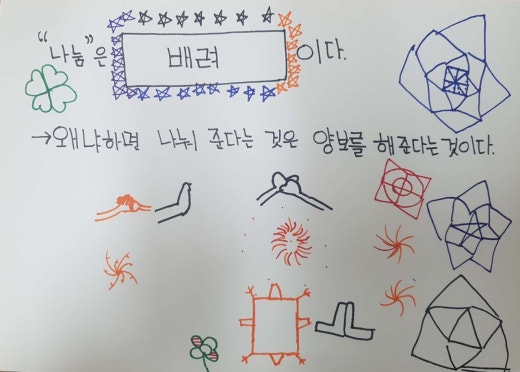 "나눔"은 배려 이다.
→왜냐하면 나눠 준다는 것은 양보를 해준다는것이다.